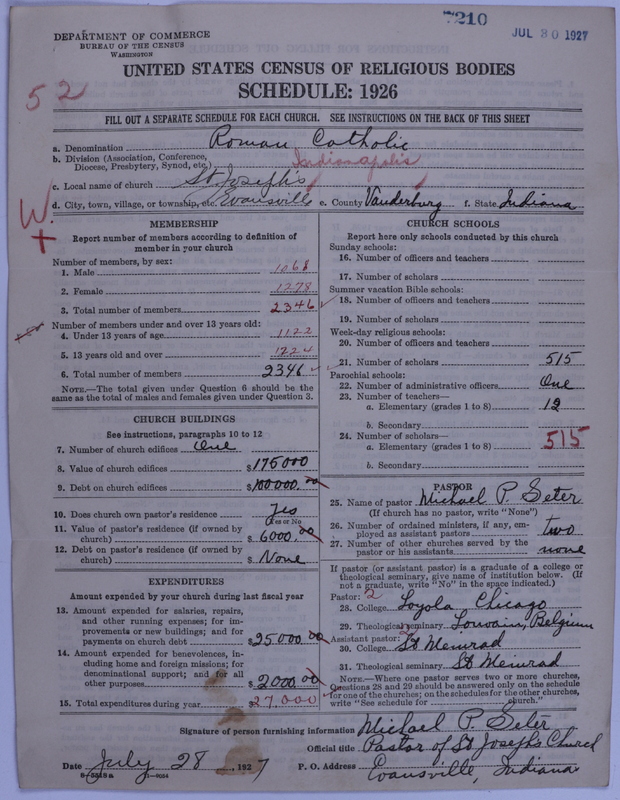 7210
JUL 30 1927
DEPARTMENT OF COMMERCE
BUREAU OF THE CENSUS
WASHINGTON
UNITED STATES CENSUS OF RELIGIOUS BODIES
SCHEDULE: 1926
52
FILL OUT A SEPARATE SCHEDULE FOR EACH CHURCH. SEE INSTRUCTIONS ON THE BACK OF THIS SHEET
a. Denomination Roman Catholic
b. Division (Association, Conference, Diocese, Presbytery, Synod, etc.) Indianapolis
c. Local name of church St Joseph's
d. City, town, village, or township, etc. Evansville e. County Vanderburg f. State Indiana
W
MEMBERSHIP
Report number of members according to definition of
member in your church
Number of members, by sex:
1. Male 1068
2. Female 1278
3. Total number of members 2346
Number of members under and over 13 years old:
4. Under 13 years of age 1122
5. 13 years old and over 1224
6. Total number of members 2346
NOTE.—The total given under Question 6 should be the
same as the total of males and females given under Question 3.
CHURCH BUILDINGS
See instructions, paragraphs 10 to 12
7. Number of church edifices One
8. Value of church edifices $175000
9. Debt on church edifices $100000.00
10. Does church own pastor's residence? Yes
Yes or No
11. Value of pastor's residence (if owned by
church) $6000.00
12. Debt on pastor's residence (if owned by
church) $None
EXPENDITURES
Amount expended by your church during last fiscal year
13. Amount expended for salaries, repairs,
and other running expenses; for im-
provements or new buildings; and for
payments on church debt $25000.00
14. Amount expended for benevolences, in-
cluding home and foreign missions; for
denominational support; and for all
other purposes $2000.00
15. Total expenditures during year $27,000
CHURCH SCHOOLS
Report here only schools conducted by this church
Sunday schools:
16. Number of officers and teachers
17. Number of scholars
Summer vacation Bible schools:
18. Number of officers and teachers
19. Number of scholars
Week-day religious schools:
20. Number of officers and teachers
21. Number of scholars 515
Parochial schools:
22. Number of administrative officers One
23. Number of teachers—
a. Elementary (grades 1 to 8) 12
b. Secondary
24. Number of scholars—
a. Elementary (grades 1 to 8) 515
b. Secondary
PASTOR
25. Name of pastor Michael P. Seter
(If church has no pastor, write "None")
26. Number of ordained ministers, if any, em-
ployed as assistant pastors two
27. Number of other churches served by the
pastor or his assistants none
If pastor (or assistant pastor) is a graduate of a college or
theological seminary, give name of institution below. (If
not a graduate, write "No" in the space indicated.)
Pastor: 2
28. College Loyola Chicago
29. Theological seminary Louvain, Belgium
Assistant pastor: 2
30. College St Meinrad
31. Theological seminary St Meinrad
NOTE.—Where one pastor serves two or more churches,
Questions 28 and 29 should be answered only on the schedule
for one of the churches; on the schedules for the other churches,
write "See schedule for church."
Signature of person furnishing information Michael P. Seter
Official title Pastor of St Joseph's Church
Date July 28, 1927 P. O. Address Evansville, Indiana